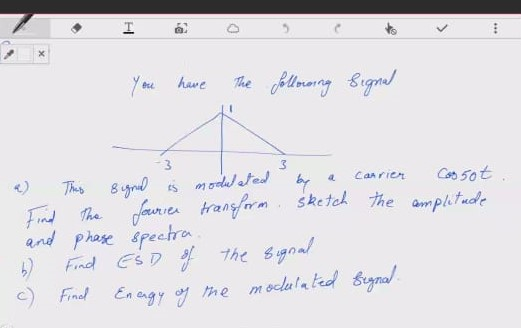 You have The following Signal
1
-3 3
a) This signal is modulated by a carrier Cos 50t.
Find The fourier transform. Sketch The amplitude
and phase spectra.
b) Find ESD of the signal
c) Find Energy of the modulated signal.